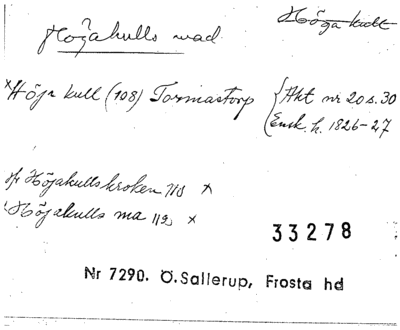 Höga kull
Högakulls mad
×Höga kull (108) Tormastorp { Akt nr 20 s. 30
Ensk. h. 1826-27
Högakullskroken 710 ×
Högakulls ma 112 ×
33278
Nr 7290. Ö.Sallerup, Frosta hd